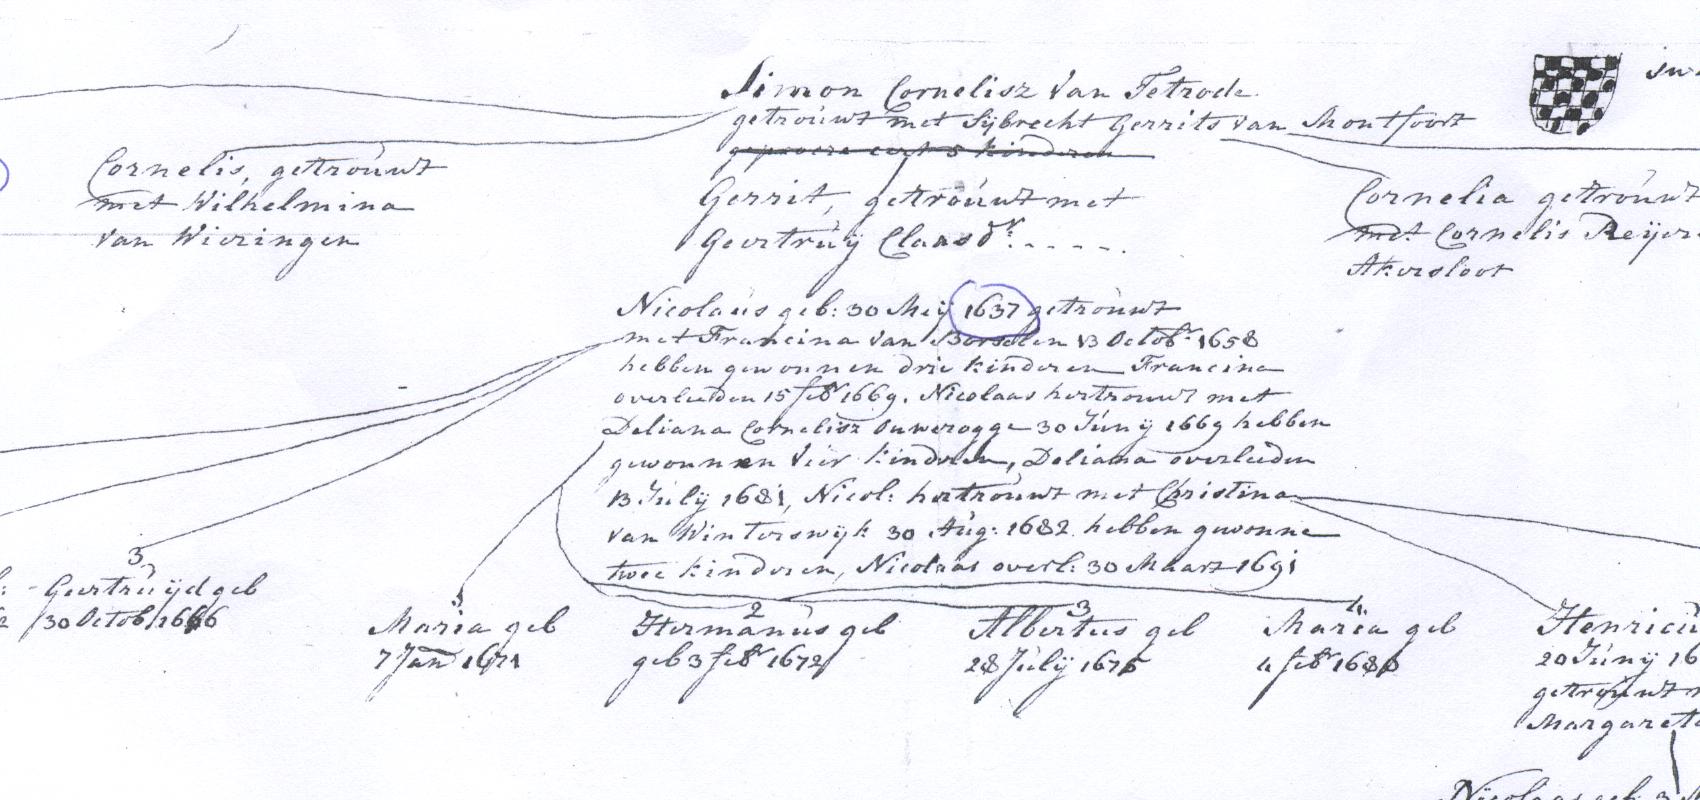 Simon Cornelisz van Tetrode
getrouwt met Sijbrecht Gerrits van Montfoort
Cornelis, getrouwt
met Wilhelmina
van Wieringen
Gerrit, getrouwt met
Geertruÿ Claasdr. - - - - .
Cornelia getrouwt
met Cornelis Reijers
Akersloot
Nicolaus geb: 30 Meij 1637 getrouwt
met Francina van Borselen 13 Octobr. 1658
hebben gewonnen drie kinderen Francina
overleeden 15 febr 1669. Nicolaas hertrouwt met
Deliana Cornelisz Ouwerogge 30 Junij 1669 hebben
gewonnen vier kinderen, Deliana overleeden
13 Julÿ 1681, Nicol: hertrouwt met Christina
van Winterswÿk 30 Aug: 1682 hebben gewonne
twee kinderen, Nicolaas overl: 30 Maart 1691
3
Geertruijd geb
30 Octob 1666
Maria geb
7 Jan 1671
2
Hermanus geb
geb 3 febr 1672
3
Albertus geb
28 Julÿ 1675
4
Maria geb
4 febr 1680
Henricu
20 Junij 16
getrouwt
Margareta
Nicolaas geb: 3